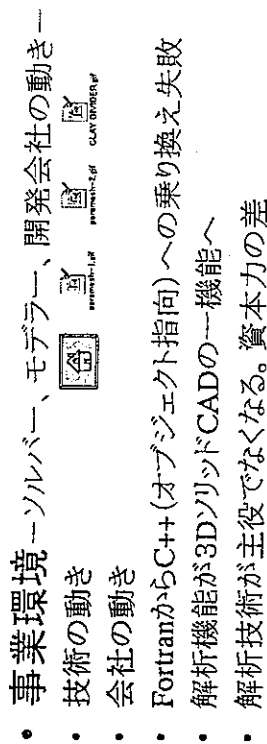 • 事業環境－ソルバー、モデラー、開発会社の動き－
paramesh-1.gif paramesh-2.gif CLAY DIVIDER.gif
• 技術の動き
• 会社の動き
• FortranからC++(オブジェクト指向)への乗り換え失敗
• 解析機能が3DソリッドCADの一機能へ
• 解析技術が主役でなくなる。資本力の差